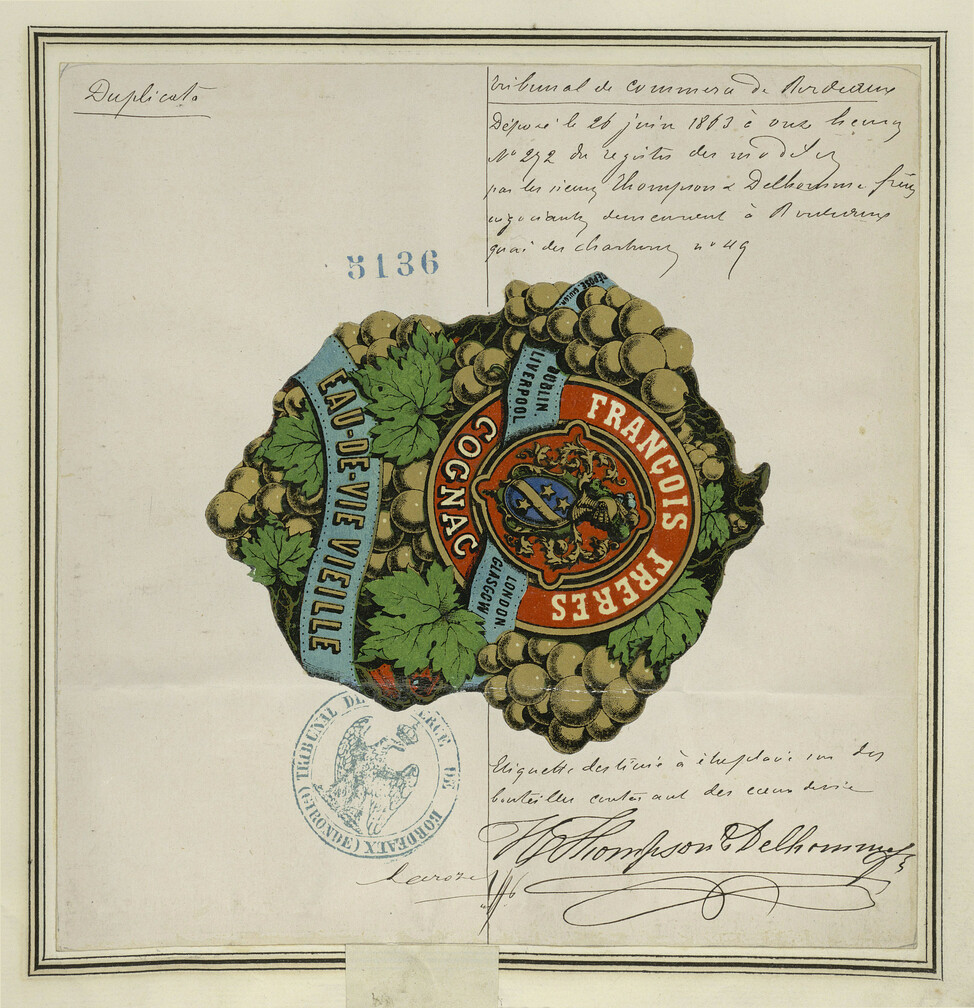 Duplicata
Tribunal de commerce de Bordeaux
Déposé le 26 juin 1863 à onze heures
No 272 du registre des modèles
par les sieurs Thompson & Delhomme frères
négociants demeurant à Bordeaux
quai des chartrons no 49
5136
DÉPOSÉ
DUBLIN.
LIVERPOOL
FRANÇOIS FRERES
COGNAC
LONDON.
GLASGOW
EAU-DE-VIE VIEILLE
TRIBUNAL DE COMMERCE DE BORDEAUX (GIRONDE)
Etiquette destinée à être placée sur des
bouteilles contenant des eaux de vie
H Thompson & Delhomme